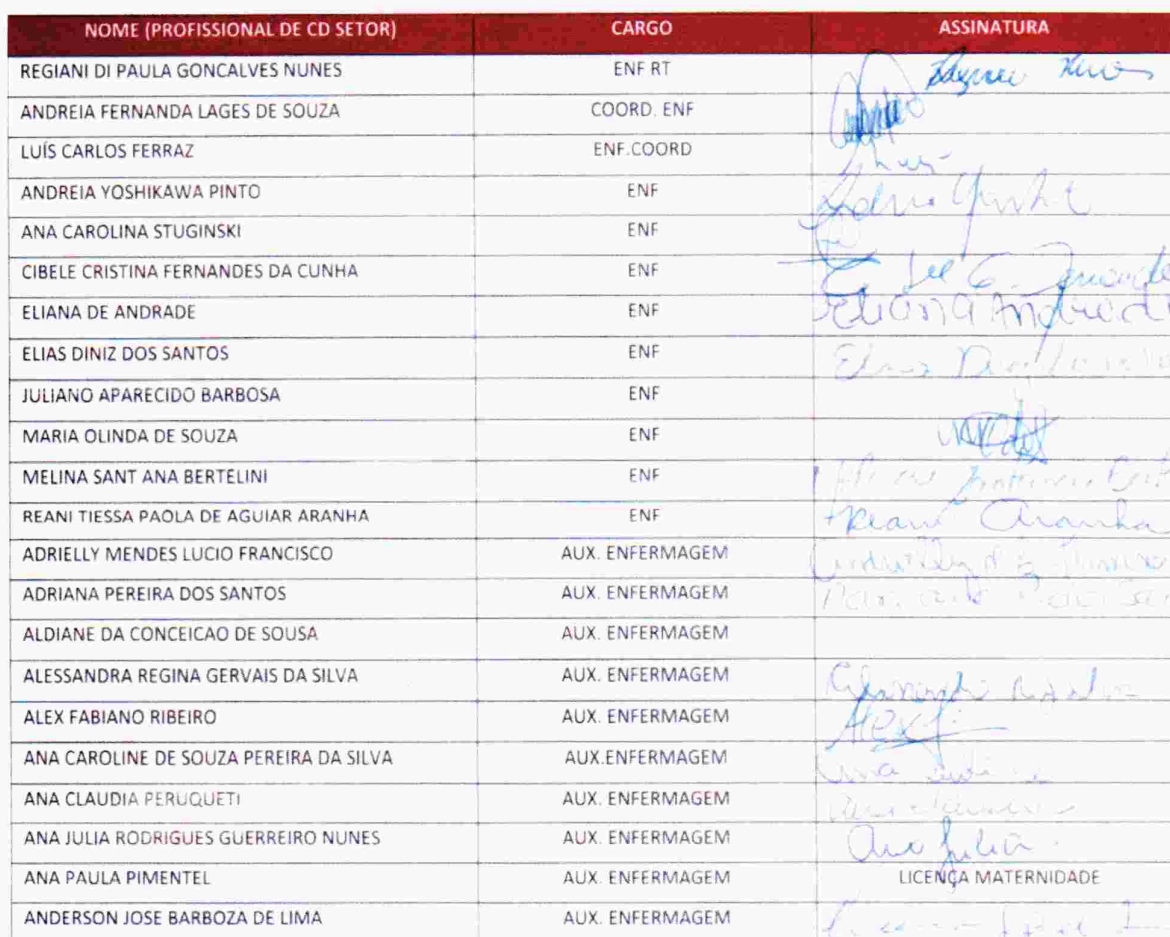 NOME (PROFISSIONAL DE CD SETOR) CARGO ASSINATURA
REGIANI DI PAULA GONCALVES NUNES ENF RT
ANDREIA FERNANDA LAGES DE SOUZA COORD. ENF
LUÍS CARLOS FERRAZ ENF.COORD Luis
ANDREIA YOSHIKAWA PINTO ENF
ANA CAROLINA STUGINSKI ENF
CIBELE CRISTINA FERNANDES DA CUNHA ENF
ELIANA DE ANDRADE ENF Eliana Andrade
ELIAS DINIZ DOS SANTOS ENF Elias Diniz
JULIANO APARECIDO BARBOSA ENF
MARIA OLINDA DE SOUZA ENF
MELINA SANT ANA BERTELINI ENF
REANI TIESSA PAOLA DE AGUIAR ARANHA ENF Reani Aranha
ADRIELLY MENDES LUCIO FRANCISCO AUX. ENFERMAGEM
ADRIANA PEREIRA DOS SANTOS AUX. ENFERMAGEM
ALDIANE DA CONCEICAO DE SOUSA AUX. ENFERMAGEM
ALESSANDRA REGINA GERVAIS DA SILVA AUX. ENFERMAGEM
ALEX FABIANO RIBEIRO AUX. ENFERMAGEM Alex
ANA CAROLINE DE SOUZA PEREIRA DA SILVA AUX.ENFERMAGEM
ANA CLAUDIA PERUQUETI AUX. ENFERMAGEM
ANA JULIA RODRIGUES GUERREIRO NUNES AUX. ENFERMAGEM Ana Julia
ANA PAULA PIMENTEL AUX. ENFERMAGEM LICENÇA MATERNIDADE
ANDERSON JOSE BARBOZA DE LIMA AUX. ENFERMAGEM